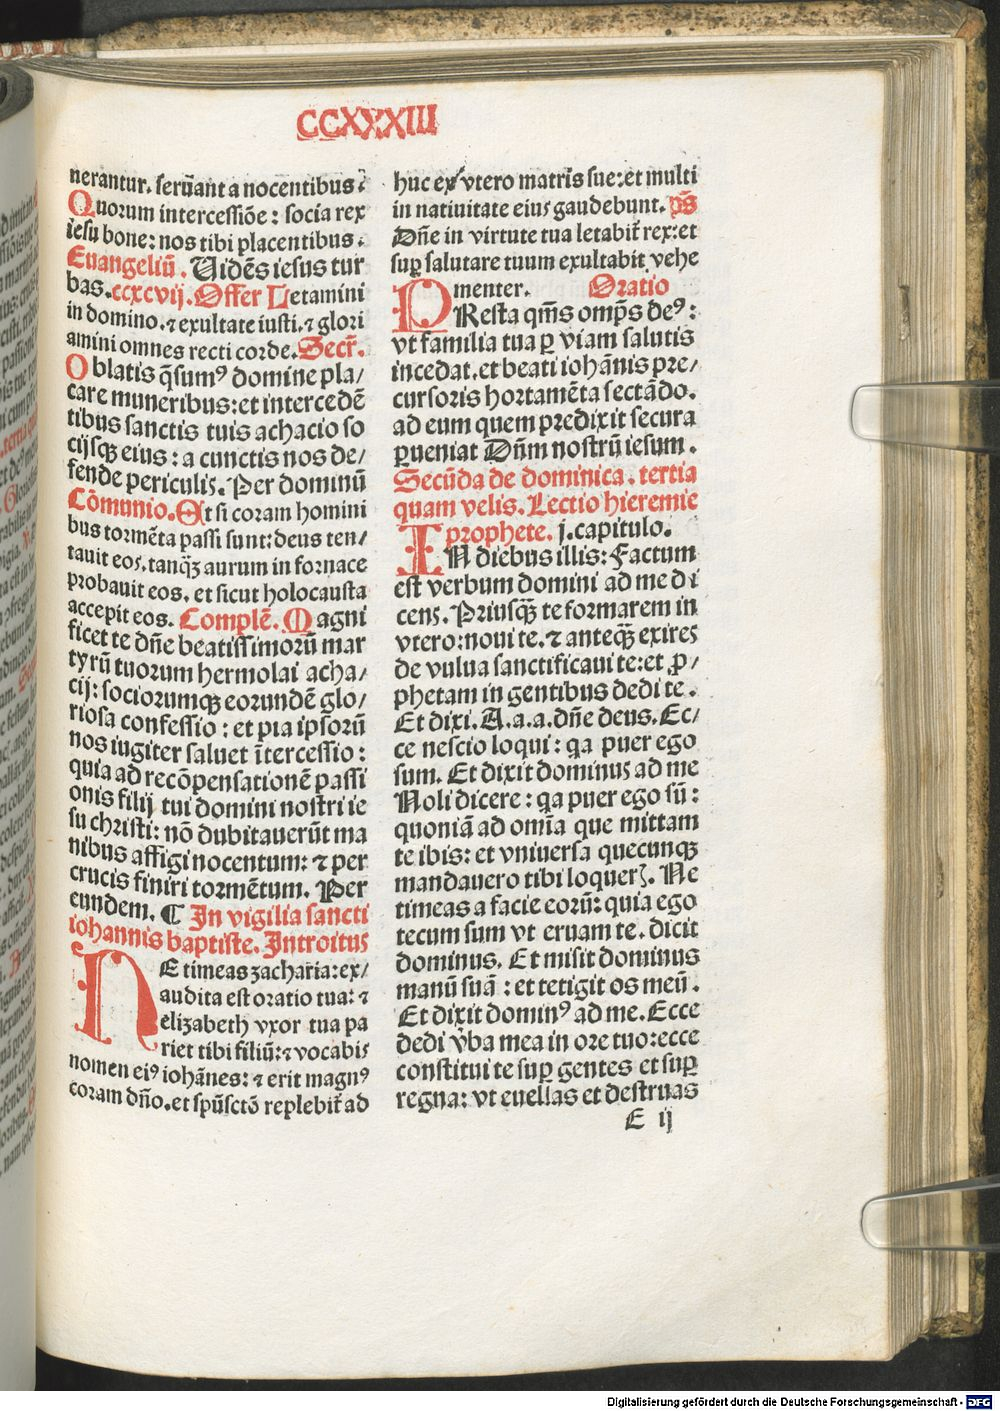 CCXXXIII
nerantur. seruāt a nocentibus:
Quorum intercessiōe: socia rex
iesu bone: nos tibi placentibus.
Euangeliū. Uidēs iesus tur
bas. ccxcvij. Offer Letamini
in domino. ⁊ exultate iusti. ⁊ glori
amini omnes recti corde. Secr̄.
Oblatis q̄sumꝰ domine pla/
care muneribus: et intercedē
tibus sanctis tuis achacio so
cijsqꝫ eius: a cunctis nos de/
fende periculis. Per dominū
Cōmunio. Et si coram homini
bus tormēta passi sunt: deus ten/
tauit eos. tanqꝫ̄ aurum in fornace
probauit eos. et sicut holocausta
accepit eos. Complē. Magni
ficet te dn̄e beatissimorū mar
tyrū tuorum hermolai acha/
cij: sociorumqꝫ eorundē glo/
riosa confessio: et pia ipsorū
nos iugiter saluet ītercessio:
quia ad recōpensationē passi
onis filij tui domini nostri ie
su christi: nō dubitauerūt ma
nibus affigi nocentum: ⁊ per
crucis finiri tormētum. Per
eundem. ¶ In vigilia sancti
iohannis baptiste. Introitus
NE timeas zacharia: ex/
audita est oratio tua: ⁊
elizabeth vxor tua pa
riet tibi filiū: ⁊ vocabis
nomen eiꝰ iohānes: ⁊ erit magnꝰ
coram dn̄o. et spūsctō replebit̄ ad
huc ex vtero matris sue: et multi
in natiuitate eius gaudebunt. ps̄
Dn̄e in virtute tua letabit̄ rex: et
suꝑ salutare tuum exultabit vehe
menter. Oratio
PResta qm̄s omp̄s deꝰ:
vt familia tua ꝑ viam salutis
incedat. et beati iohānis pre/
cursoris hortamēta sectādo.
ad eum quem predixit secura
ꝑueniat Dn̄m nostrū iesum.
Secūda de dominica. tertia
quam velis. Lectio hieremie
prophete. j. capitulo.
IN diebus illis: Factum
est verbum domini ad me di
cens. Priusqꝫ̄ te formarem in
vtero: noui te. ⁊ anteqꝫ̄ exires
de vulua sanctificaui te: et ꝓ/
phetam in gentibus dedi te.
Et dixi. A. a. a. dn̄e deus. Ec/
ce nescio loqui: qa puer ego
sum. Et dixit dominus ad me
Noli dicere: qa puer ego sū:
quoniā ad omīa que mittam
te ibis: et vniuersa quecunqꝫ
mandauero tibi loquerꝭ. Ne
timeas a facie eorū: quia ego
tecum sum vt eruam te. dicit
dominus. Et misit dominus
manū suā: et tetigit os meū.
Et dixit dominꝰ ad me. Ecce
dedi v̄ba mea in ore tuo: ecce
constitui te suꝑ gentes et suꝑ
regna: vt euellas et destruas
E ij
Digitalisierung gefördert durch die Deutsche Forschungsgemeinschaft - DFG